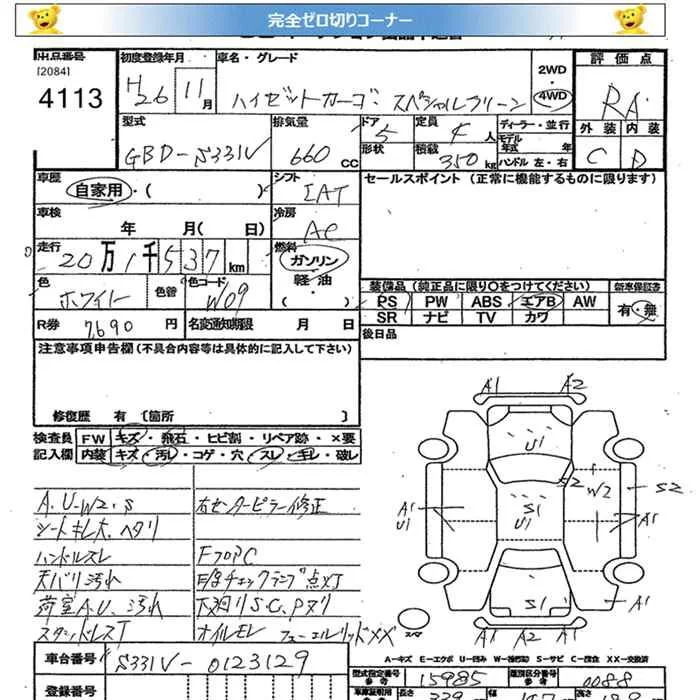 完全ゼロ切りコーナー
出品番号
[2084]
4113
初度登録年月
H26 11月
車名・グレード
ハイゼットカーゴ スペシャルクリーン
2WD
・
4WD
評価点
RA
外装 内装
C D
型式
GBD-S331V
排気量
660 cc
ドア 5
形状
定員 4人
積載 350kg
ディーラー・並行
モデル年式 年
ハンドル 左・右
車歴
自家用・( )
シフト
IAT
セールスポイント(正常に機能するものに限ります)
車検
年 月( 日)
冷房
AC
走行
20万1千537km
燃料
ガソリン
軽油
( )
色
ホワイト
色替
色コード
W09
装備品(純正品に限り○をつけてください)
PS PW ABS エアB AW
SR ナビ TV カワ
新車保証書
有・無
R券 7,690円
名変通知期限 月 日
後日品
注意事項申告欄(不具合内容等は具体的に記入して下さい)
修復歴 有 [箇所 ]
検査員記入欄
FW キズ・飛石・ヒビ割・リペア跡・×要
内装 キズ・汚レ・コゲ・穴・スレ・キレ・破レ
A.U.W2.S
シートキレ大、ヘタリ
ハンドルスレ
天バリ汚れ
荷室A.U、汚れ
スタッドレスT
右センターピラー修正
FフロアC
E/Gチェックランプ点灯
下廻りS.C、Pヌリ
オイルモレ フューエルリッドXX
A1 A2
U1
S2 W2 S2
A1 U1
S1 U1
A1
S1
A1
A1 A2 A1
スペア
A-キズ E-エクボ U-凹み W-補修跡 S-サビ C-腐食 XX-交換済
車台番号
S331V-0123129
登録番号
型式指定番号 参考
15985
類別区分番号 参考
0088
長さ